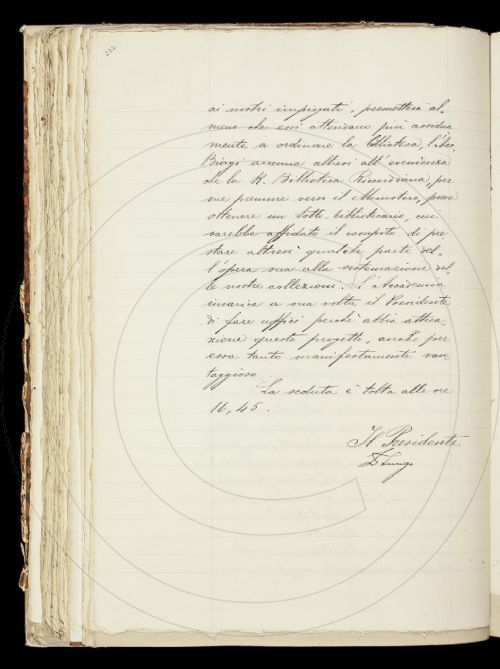 ai nostri impiegati, permetterà al-
meno che essi attendano più assidua
mente a ordinare la biblioteca. L'Acc.
Biagi accenna altresì all'evenienza
che la R. Biblioteca Riccardiana, per
sue premure verso il Ministero, possa
ottenere un sotto-bibliotecario, cui
sarebbe affidato il compito di pre
stare altresì qualche parte del-
l'opera sua alla sistemazione del-
le nostre collezioni. L'Accademia
incarica a sua volta il Presidente
di fare uffici perchè abbia attua-
zione questo progetto, anche per
essa tanto manifestamente van
taggioso.
La seduta è tolta alle ore
16,45.
Il Presidente